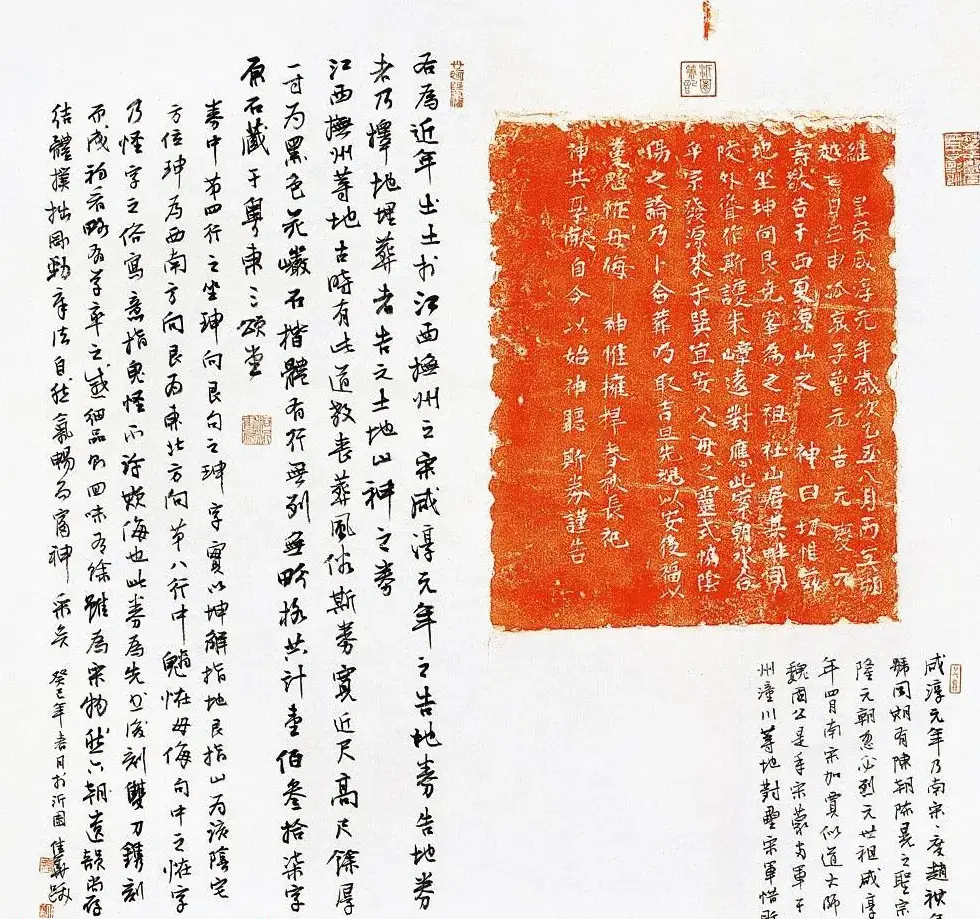 維 皇宋咸淳元年歲次乙丑八月丙寅朔
越 日 申孤哀子曾元吉元慶元
壽敢告于西夏源山之 神曰 切惟
地坐坤向艮 峯為之祖社山居其畔同
外聳作斯護朱嶂遠對應此案朝水合
平宗發源來于巽宜安父母之靈式憰陰
陽之論乃卜合葬為取吉旦先魂以安後福以
蔓 怪毋侮 神惟擁捍春秋長祀
神共享獻自今以始神聽斯券謹告
咸淳元年乃南宋度趙禥
號同期有陳朝陳晃之聖宗
隆元朝忽必烈元世祖咸淳
年四月南宋加賈似道大師
魏國公是年宋蒙古軍于
州潼川等地對壘宋軍惜敗
右為近年出土於江西撫州之宋咸淳元年之告地券告地券
者乃擇地埋葬者告之土地山神之券
江西撫州等地古時有此道教喪葬風俗斯券寬近尺高尺餘厚
一寸為黑色花巖石楷體有行無列無畛格共計壹佰叁拾柒字
原石藏于粵東三頌堂
券中第四行之坐坤向艮句之坤字實以坤解指地艮指山為該陰宅
方位坤為西南方向艮為東北方向第八行中 怪毋侮句中之怪字
乃怪字之俗寫意指鬼怪不許欺侮也此券為先書後刻雙刀鐫刻
而成初看略有草率之感細品則回味有餘雖為宋物然六朝遺韻尚存
結體樸拙剛勁章法自然氣暢而富神采矣
癸巳年 月於沂園佳 跋